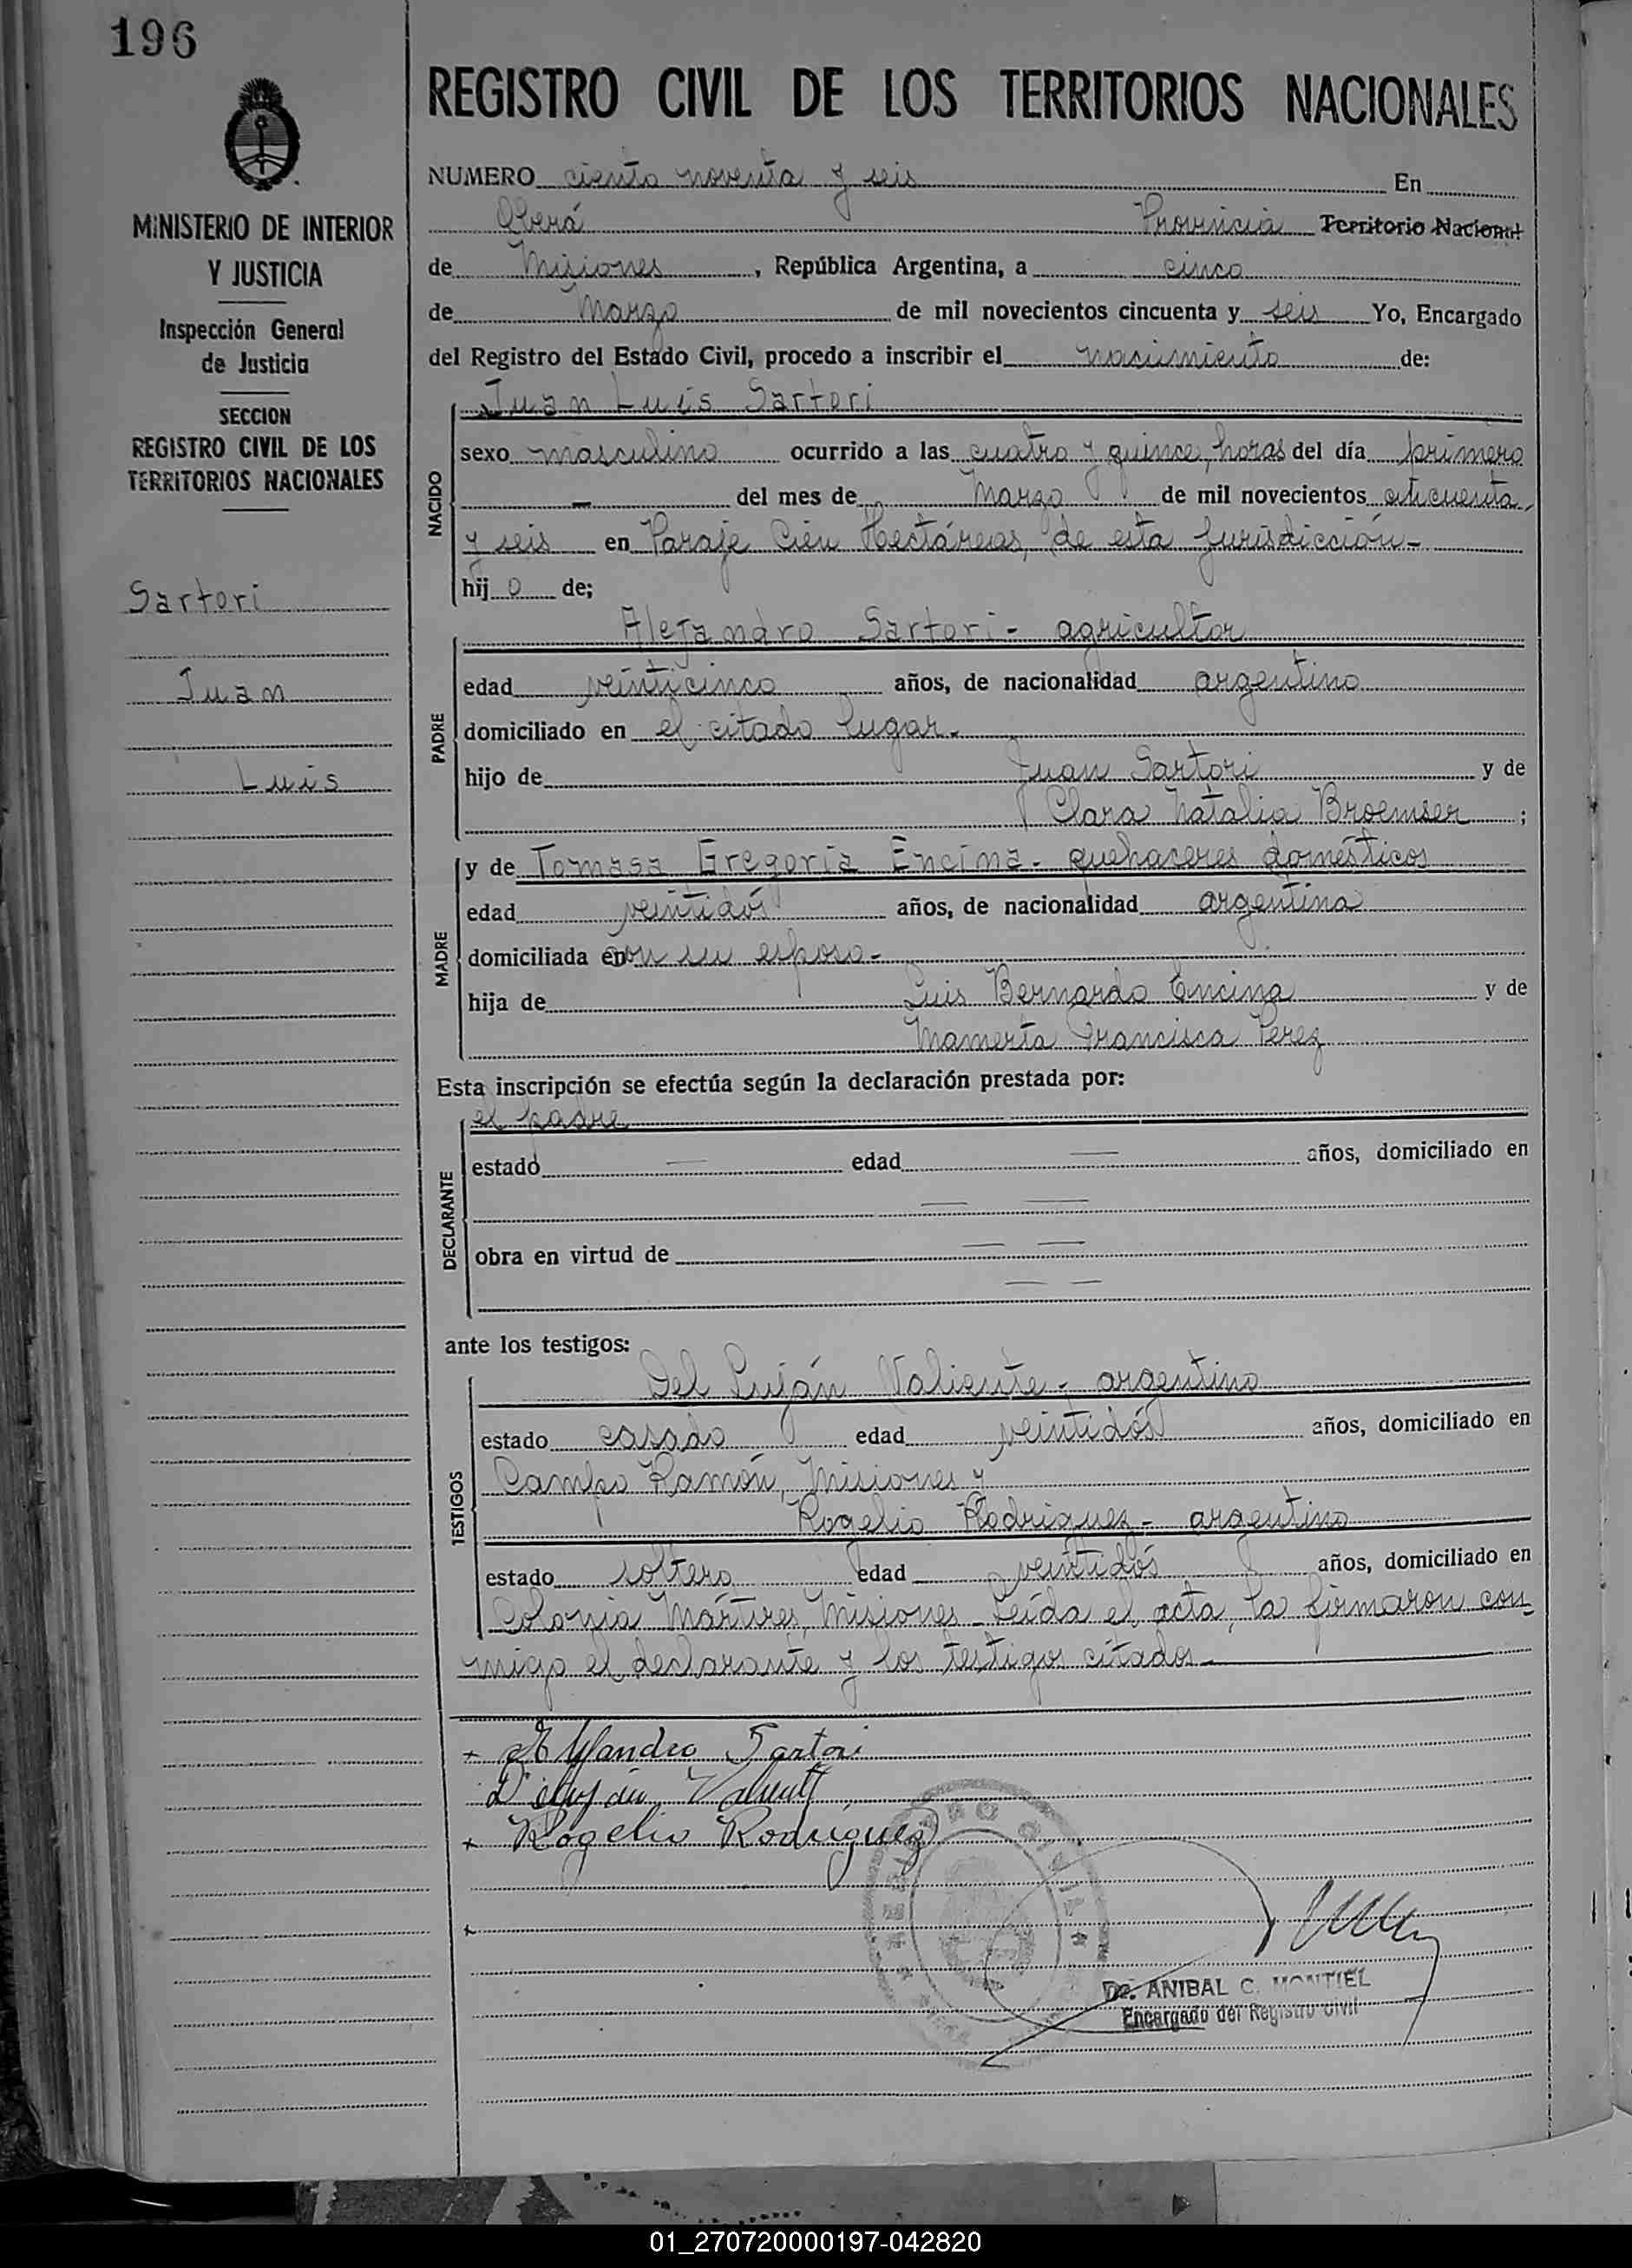 196
REGISTRO CIVIL DE LOS TERRITORIOS NACIONALES
MINISTERIO DE INTERIOR
Y JUSTICIA
Inspección General
de Justicia
SECCION
REGISTRO CIVIL DE LOS
TERRITORIOS NACIONALES
Sartori
Juan
Luis
NUMERO ciento noventa y seis En
Oberá Provincia Territorio Nacional
de Misiones, República Argentina, a cinco
de Marzo de mil novecientos cincuenta y seis Yo, Encargado
del Registro del Estado Civil, procedo a inscribir el nacimiento de:
NACIDO
Juan Luis Sartori
sexo masculino ocurrido a las cuatro y quince horas del día primero
— del mes de Marzo de mil novecientos cincuenta
y seis en Paraje Cien Hectáreas, de esta jurisdicción-
hijo de;
PADRE
Alejandro Sartori - agricultor
edad veinticinco años, de nacionalidad argentino
domiciliado en el citado lugar.
hijo de Juan Sartori y de
Clara Natalia Broemser ;
MADRE
y de Tomasa Gregoria Encina - quehaceres domésticos
edad veintidós años, de nacionalidad argentina
domiciliada en con su esposo-
hija de Luis Bernardo Encina y de
Mamerta Francisca Perez
Esta inscripción se efectúa según la declaración prestada por:
DECLARANTE
el padre
estado — edad — años, domiciliado en
— —
obra en virtud de — —
— —
ante los testigos:
TESTIGOS
Del Luján Valiente - argentino
estado casado edad veintidós años, domiciliado en
Campo Ramón, Misiones y
Rogelio Rodriguez - argentino
estado soltero edad veintidós años, domiciliado en
Colonia Mártires, Misiones - Leída el acta, la firmaron con
migo el declarante y los testigos citados-
Sartori
Rogelio Rodriguez
REGISTRO CIVIL
Dr. ANIBAL C. MONTIEL
Encargado del Registro Civil
01_270720000197-042820